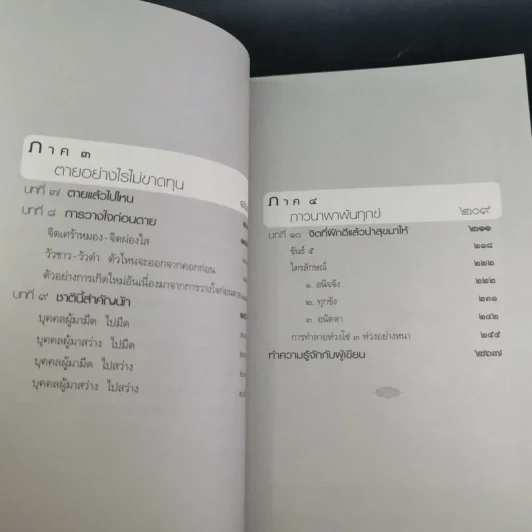 ภาค ๓
ตายอย่างไรไม่ขาดทุน
บทที่ ๗ ตายแล้วไปไหน
บทที่ ๘ การวางใจก่อนตาย
จิตเศร้าหมอง-จิตผ่องใส
วัวขาว-วัวดำ ตัวไหนจะออกจากคอกก่อน
ตัวอย่างการเกิดใหม่อันเนื่องมาจากการวางใจก่อนตาย
บทที่ ๙ ชาตินี้สำคัญนัก
บุคคลผู้มามืด ไปมืด
บุคคลผู้มาสว่าง ไปมืด
บุคคลผู้มามืด ไปสว่าง
บุคคลผู้มาสว่าง ไปสว่าง
ภาค ๔
ภาวนาพาพ้นทุกข์ ๒๐๙
บทที่ ๑๐ จิตที่ฝึกดีแล้วนำสุขมาให้ ๒๑๑
ขันธ์ ๕ ๒๑๘
ไตรลักษณ์ ๒๒๒
๑. อนิจจัง ๒๒๒
๒. ทุกขัง ๒๓๑
๓. อนัตตา ๒๔๒
การทำลายห่วงโซ่ ๓ ห่วงอย่างหนา ๒๕๕
ทำความรู้จักกับผู้เขียน ๒๖๗